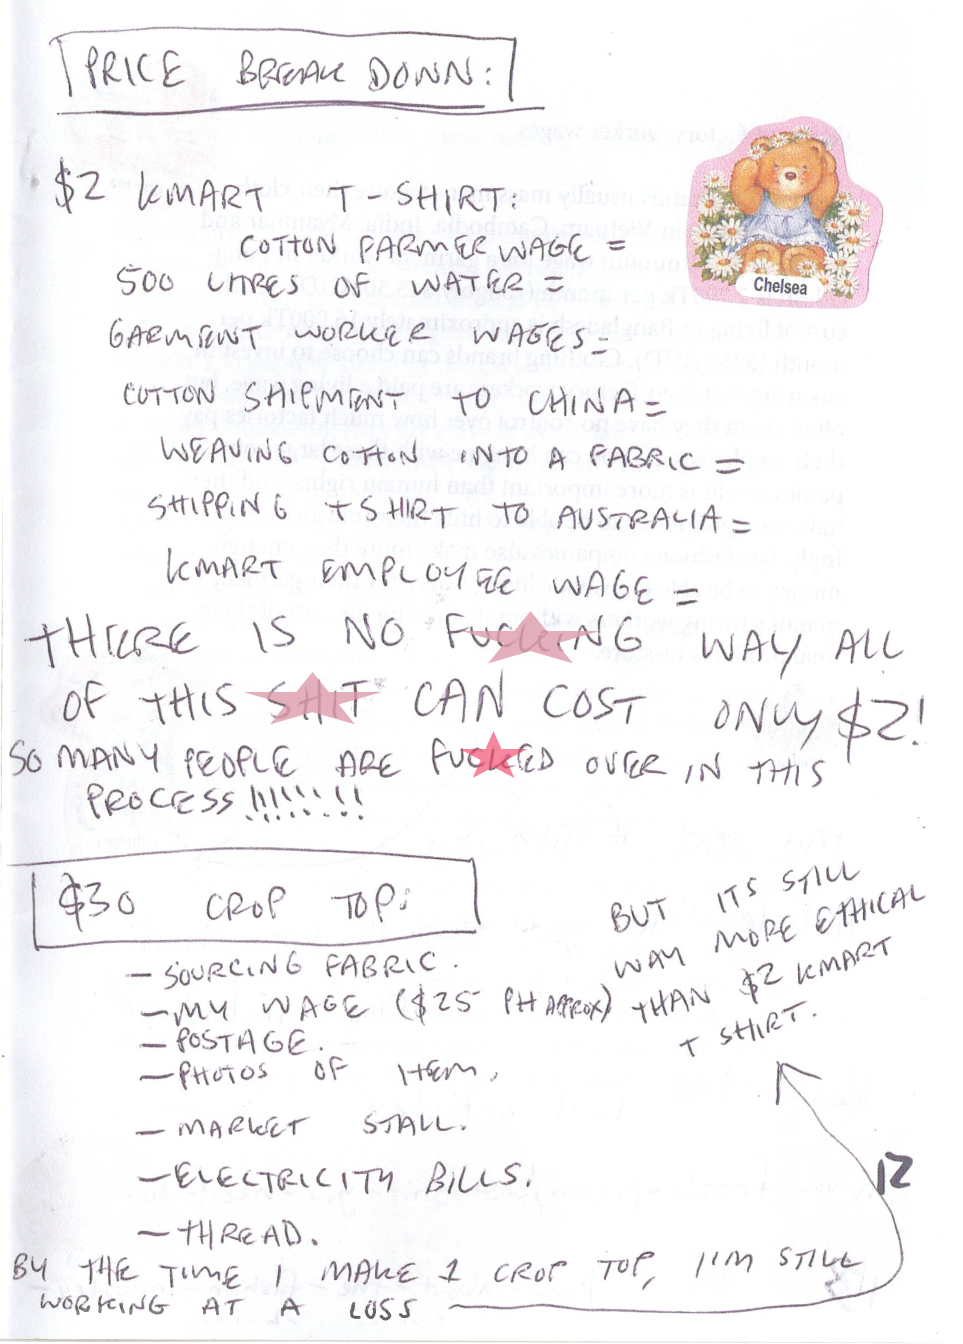 PRICE BREAK DOWN:
Chelsea
$2 KMART T-SHIRT:
COTTON FARMER WAGE =
500 LITRES OF WATER =
GARMENT WORKER WAGES =
COTTON SHIPMENT TO CHINA =
WEAVING COTTON INTO A FABRIC =
SHIPPING T SHIRT TO AUSTRALIA =
KMART EMPLOYEE WAGE =
THERE IS NO FUCKING WAY ALL
OF THIS SHIT CAN COST ONLY $2!
SO MANY PEOPLE ARE FUCKED OVER IN THIS
PROCESS!!!!!!!!
$30 CROP TOP:
- SOURCING FABRIC.
- MY WAGE ($25 PH APPROX)
- POSTAGE.
- PHOTOS OF ITEM.
- MARKET STALL.
- ELECTRICITY BILLS.
- THREAD.
BY THE TIME I MAKE 1 CROP TOP, I'M STILL
WORKING AT A LOSS
BUT ITS STILL
WAY MORE ETHICAL
THAN $2 KMART
T SHIRT.
12